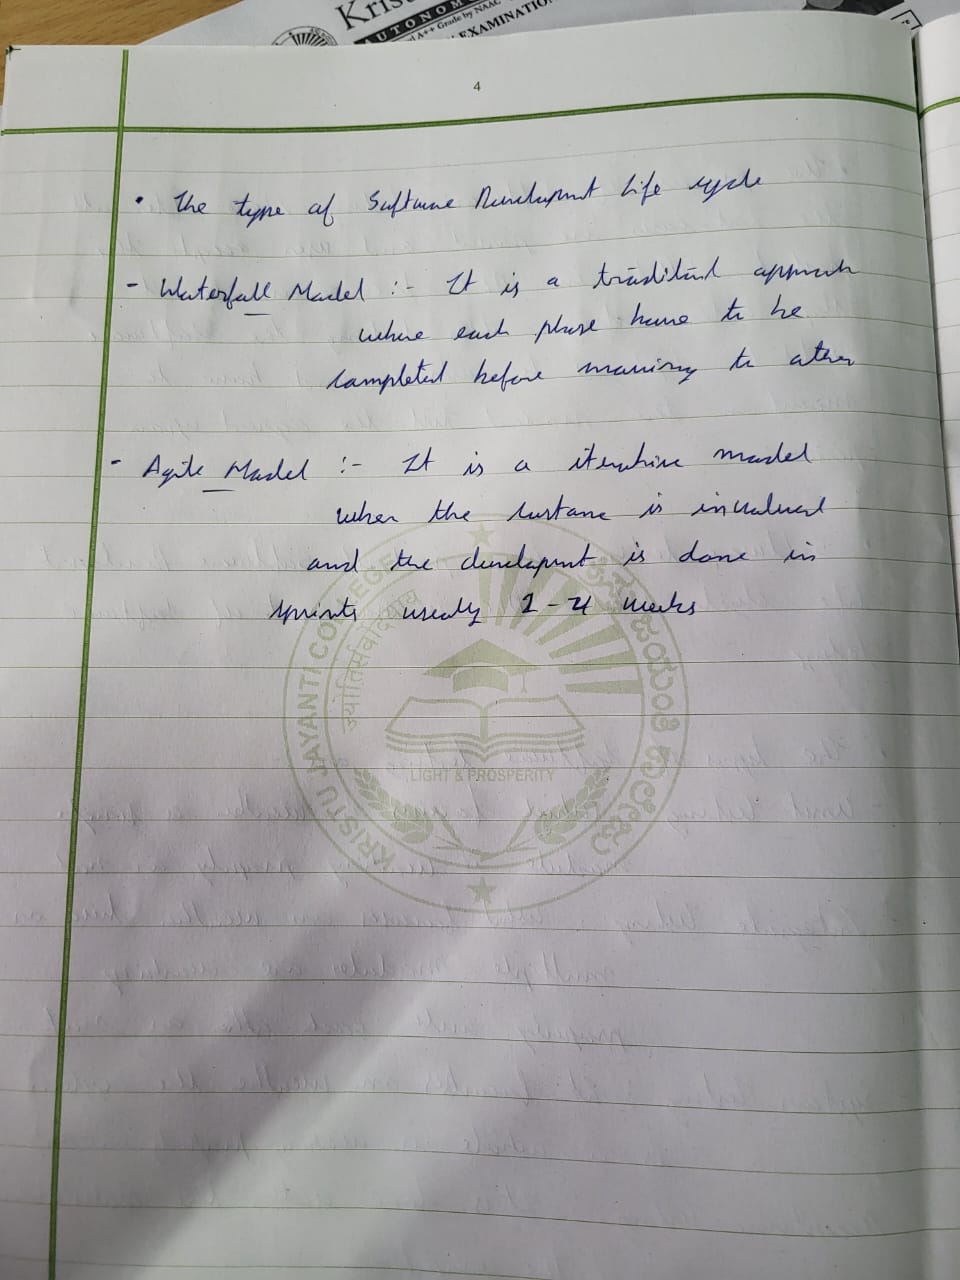 Kris
AUTONOMO
A++ Grade by NAAC
EXAMINATION
4
• The type of Software Development Life cycle
- Waterfall Model :- It is a traditional approach
where each phase have to be
completed before moving to other
- Agile Model :- It is a iterative model
when the custome is involved
and the development is done in
sprints usually 2-4 weeks
KRISTU JAYANTI COLLEGE
ज्योतिर्सर्वोदयाय
LIGHT & PROSPERITY